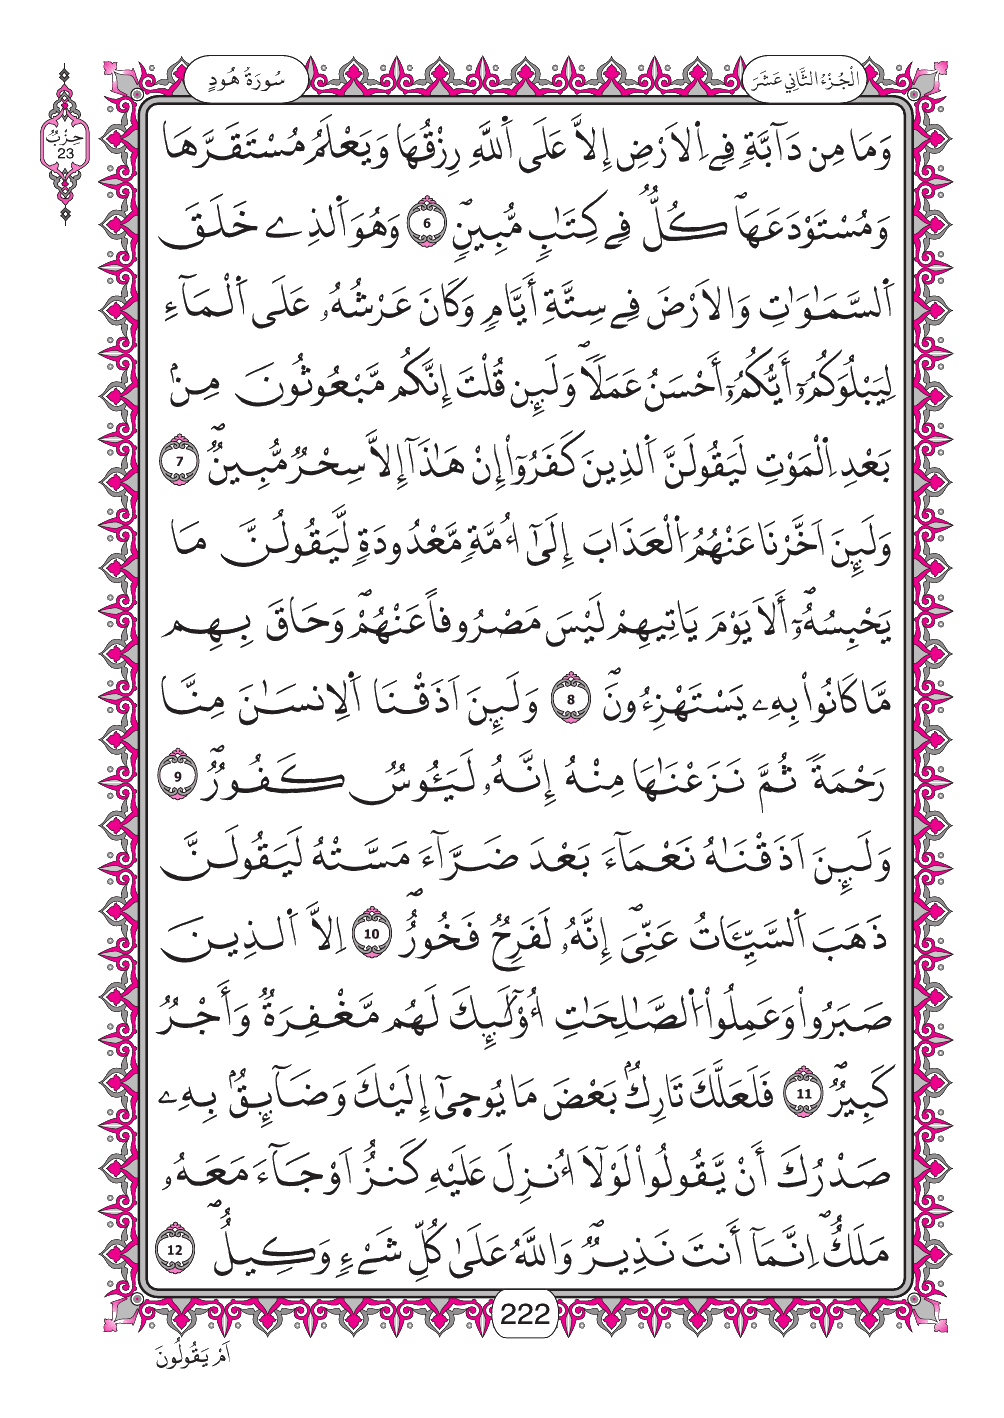 سُورَةُ هُودٍ
الْجُزْءُ الثَّانِي عَشَرَ
حِزْبٌ
23
وَمَا مِن دَآبَّةٖ فِے اِ۬لَارْضِ إِلَّا عَلَى اَ۬للَّهِ رِزْقُهَا وَيَعْلَمُ مُسْتَقَرَّهَا
وَمُسْتَوْدَعَهَاۖ كُلّٞ فِے كِتَٰبٖ مُّبِينٖۖ 6 وَهُوَ اَ۬لذِے خَلَقَ
اَ۬لسَّمَٰوَٰتِ وَالَارْضَ فِے سِتَّةِ أَيَّامٖ وَكَانَ عَرْشُهُۥ عَلَى اَ۬لْمَآءِ
لِيَبْلُوَكُمُۥٓ أَيُّكُمُۥٓ أَحْسَنُ عَمَلاٗۖ وَلَئِن قُلْتَ إِنَّكُم مَّبْعُوثُونَ مِنۢ
بَعْدِ اِ۬لْمَوْتِ لَيَقُولَنَّ اَ۬لذِينَ كَفَرُوٓاْ إِنْ هَٰذَآ إِلَّا سِحْرٞ مُّبِينٞۖ 7
وَلَئِنَ اَخَّرْنَا عَنْهُمُ اُ۬لْعَذَابَ إِلَىٰٓ أُمَّةٖ مَّعْدُودَةٖ لَّيَقُولُنَّ مَا
يَحْبِسُهُۥٓۖ أَلَا يَوْمَ يَاتِيهِمْ لَيْسَ مَصْرُوفاً عَنْهُمْۖ وَحَاقَ بِهِم
مَّا كَانُواْ بِهِۦ يَسْتَهْزِءُونَۖ 8 وَلَئِنَ اَذَقْنَا اَ۬لِانسَٰنَ مِنَّا
رَحْمَةٗ ثُمَّ نَزَعْنَٰهَا مِنْهُ إِنَّهُۥ لَيَـُٔوسٞ كَفُورٞۖ 9
وَلَئِنَ اَذَقْنَٰهُ نَعْمَآءَ بَعْدَ ضَرَّآءَ مَسَّتْهُ لَيَقُولَنَّ
ذَهَبَ اَ۬لسَّيِّـَٔاتُ عَنِّيَۖ إِنَّهُۥ لَفَرِحٞ فَخُورٌۖ 10 اِلَّا اَ۬لذِينَ
صَبَرُواْ وَعَمِلُواْ اُ۬لصَّٰلِحَٰتِ أُوْلَٰٓئِكَ لَهُم مَّغْفِرَةٞ وَأَجْرٞ
كَبِيرٞۖ 11 فَلَعَلَّكَ تَارِكُۢ بَعْضَ مَا يُوحَىٰٓ إِلَيْكَ وَضَآئِقُۢ بِهِۦ
صَدْرُكَ أَنْ يَّقُولُواْ لَوْلَآ أُنزِلَ عَلَيْهِ كَنزٌ اَوْ جَآءَ مَعَهُۥ
مَلَكٌۖ اِنَّمَآ أَنتَ نَذِيرٞۖ وَاللَّهُ عَلَىٰ كُلِّ شَےْءٖ وَكِيلٌۖ 12
222
اَمْ يَقُولُونَ